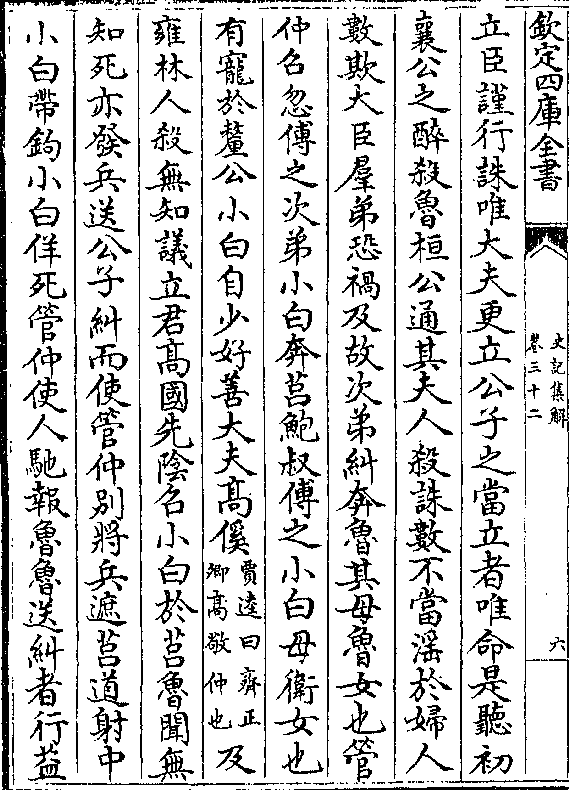 欽定四庫全書
史記集解
卷三十二
六
立臣謹行誅唯大夫更立公子之當立者唯命是聽初
襄公之醉殺魯桓公通其夫人殺誅數不當滛於婦人
數欺大臣羣弟恐禍及故次弟糾奔魯其母魯女也管
仲召忽傅之次弟小白奔莒鮑叔傅之小白母衛女也
有寵於釐公小白自少好善大夫髙傒賈逵曰齊正卿髙敬仲也及
雍林人殺無知議立君髙國先陰召小白於莒魯聞無
知死亦發兵送公子糾而使管仲別將兵遮莒道射中
小白帶鉤小白佯死管仲使人馳報魯魯送糾者行益